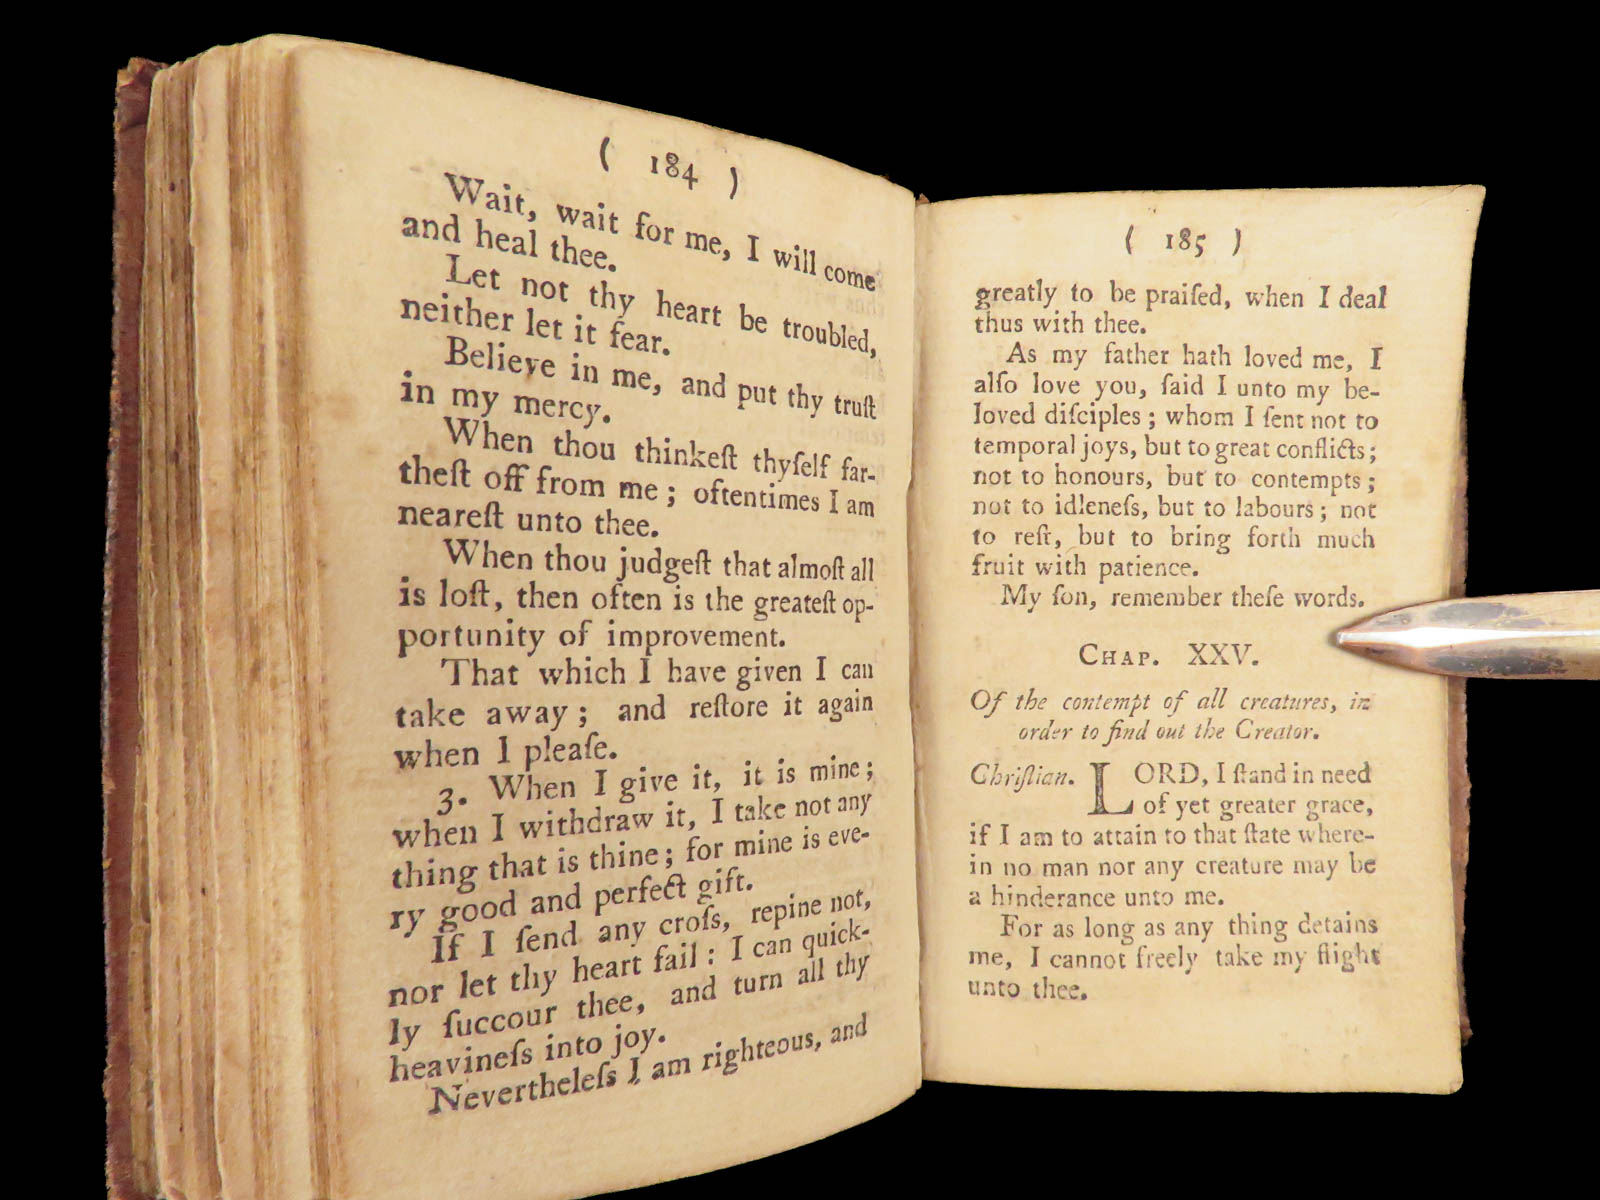 ( 184 )
Wait, wait for me, I will come
and heal thee.
Let not thy heart be troubled,
neither let it fear.
Believe in me, and put thy truſt
in my mercy.
When thou thinkeſt thyſelf far-
theſt off from me ; oftentimes I am
neareſt unto thee.
When thou judgeſt that almoſt all
is loſt, then often is the greateſt op-
portunity of improvement.
That which I have given I can
take away ; and reſtore it again
when I pleaſe.
3. When I give it, it is mine ;
when I withdraw it, I take not any
thing that is thine ; for mine is eve-
ry good and perfect gift.
If I ſend any croſs, repine not,
nor let thy heart fail : I can quick-
ly ſuccour thee, and turn all thy
heavineſs into joy.
Nevertheleſs I am righteous, and
( 185 )
greatly to be praiſed, when I deal
thus with thee.
As my father hath loved me, I
alſo love you, ſaid I unto my be-
loved diſciples ; whom I ſent not to
temporal joys, but to great conflicts ;
not to honours, but to contempts ;
not to idleneſs, but to labours ; not
to reſt, but to bring forth much
fruit with patience.
My ſon, remember theſe words.
CHAP. XXV.
Of the contempt of all creatures, in
order to find out the Creator.
Chriſtian. LORD, I ſtand in need
of yet greater grace,
if I am to attain to that ſtate where-
in no man nor any creature may be
a hinderance unto me.
For as long as any thing detains
me, I cannot freely take my flight
unto thee.